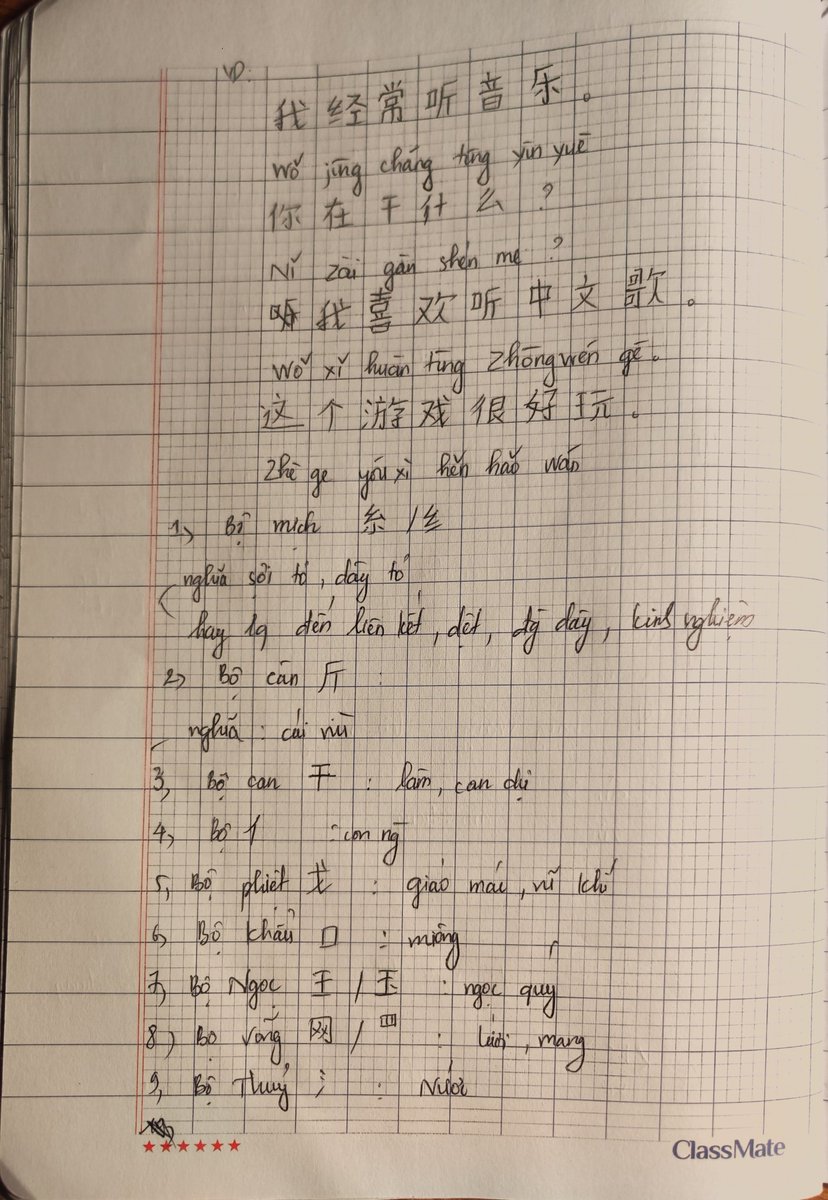 VD:
我经常听音乐。
wǒ jīng cháng tīng yīn yuē
你在干什么?
Nǐ zài gān shén me ?
我喜欢听中文歌。
wǒ xǐ huān tīng Zhōngwén gē.
这个游戏很好玩.
Zhè ge yóu xì hěn hǎo wán
1, Bộ mịch 糸 / 纟
nghĩa sợi tơ, dây tơ
hay lq đến liên kết, dệt, đy dây, kinh nghiệm
2, Bộ cân 斤 :
nghĩa : cái rìu
3, Bộ can 干 : làm, can dự
4, Bộ 亻 : con ng
5, Bộ phiệt 戈 : giáo mác, vũ khí
6, Bộ khẩu 口 : miệng
7, Bộ Ngọc 王 / 玉 : ngọc quý
8, Bộ Võng 网 / 罒 : lưới, mạng
9, Bộ Thuỷ 氵 : Nước
ClassMate